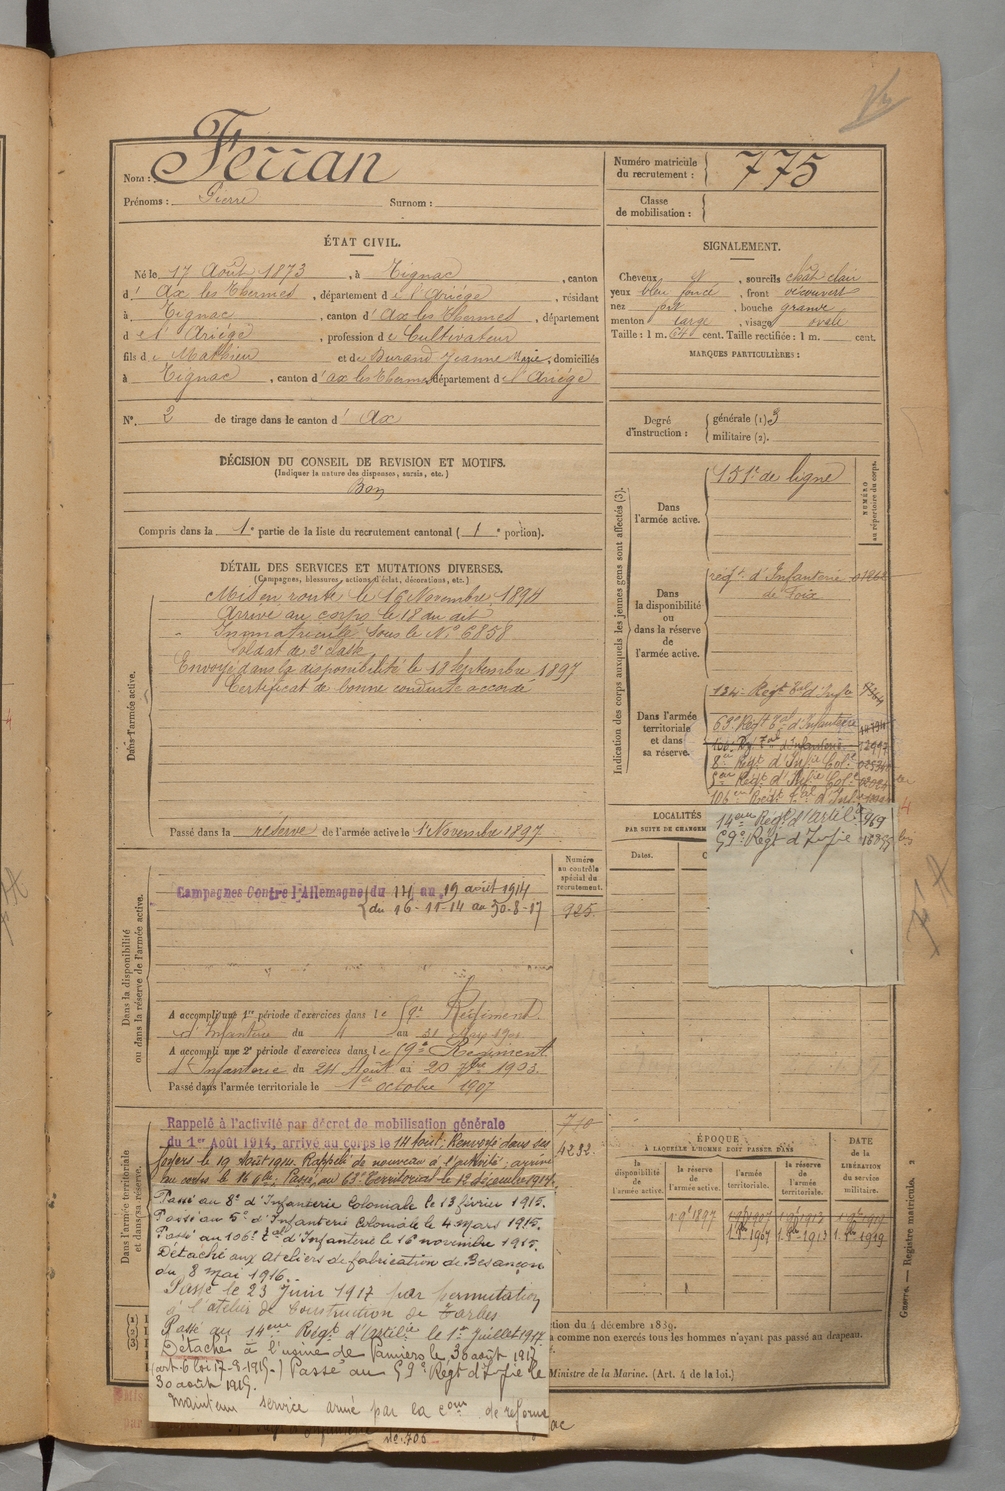 Nom : Ferran
Prénoms : Pierre Surnom :
Numéro matricule du recrutement : 775
Classe de mobilisation :
ÉTAT CIVIL.
Né le 17 Août 1873, à Tignac, canton
d' Ax les Thermes, département de l'Ariége, résidant
à Tignac, canton d'Ax les Thermes, département
de l'Ariége, profession de Cultivateur
fils de Mathieu et de Durand Jeanne Marie, domiciliés
à Tignac, canton d'ax les Thermes département de l'Ariége
N° 2 de tirage dans le canton d' Ax
SIGNALEMENT.
Cheveux et, sourcils chât clair
yeux bleu foncé, front découvert
nez pt, bouche grande
menton large, visage ovale
Taille : 1 m. cent. Taille rectifiée : 1 m. cent.
MARQUES PARTICULIÈRES :
Degré d'instruction :
générale (1) 3
militaire (2).
DÉCISION DU CONSEIL DE REVISION ET MOTIFS.
(Indiquer la nature des dispenses, sursis, etc.)
Bon
Compris dans la 1e partie de la liste du recrutement cantonal ( 1 e portion).
DÉTAIL DES SERVICES ET MUTATIONS DIVERSES.
(Campagnes, blessures, actions d'éclat, décorations, etc.)
Dans l'armée active.
Mis en route le 16 Novembre 1894
Arrivé au corps le 18 du dit
Immatriculé sous le N° 6858
Soldat de 2e classe
Envoyé dans la disponibilité le 18 Septembre 1897
Certificat de bonne conduite accordé
Passé dans la réserve de l'armée active le 1er Novembre 1897
Indication des corps auxquels les jeunes gens sont affectés (3).
NUMÉRO au répertoire du corps.
Dans l'armée active.
151e de ligne
Dans la disponibilité ou dans la réserve de l'armée active.
régt. d'Infanterie
de Foix
Dans l'armée territoriale et dans sa réserve.
134e Régt Tal d'Infie
63e Régt Tal d'Infanterie
106e Rgt Tal d'Infanterie
8me Régt. d'Infie Cole
5me Régt. d'Infie Cole
106me Régt. Tal d'Infie
14eme Régt d'artilie 969
59e Régt d'Infie
LOCALITÉS
PAR SUITE DE CHANGEM
Dates.
Numéro au contrôle spécial du recrutement.
925
Dans la disponibilité ou dans la réserve de l'armée active.
Campagnes Contre l'Allemagne du 14 au 19 août 1914
du 16-11-14 au 30-8-17
A accompli une 1re période d'exercices dans le 59e Régiment
d'Infanterie du 4 au 31 Mars 1900
A accompli une 2e période d'exercices dans le 59e Régiment
d'Infanterie du 24 Août au 20 7bre 1903.
Passé dans l'armée territoriale le 1er octobre 1907
Dans l'armée territoriale et dans sa réserve.
710
4232.
Rappelé à l'activité par décret de mobilisation générale
du 1er Août 1914, arrivé au corps le 14 Août; Renvoyé dans ses
foyers le 19 Août 1914. Rappelé de nouveau à l'activité; arrivé
au corps le 16 9bre; Passé au 63e Territorial le 12 décembre 1914.
Passé au 8e d'Infanterie Coloniale le 13 février 1915.
Passé au 5e d'Infanterie Coloniale le 4 mars 1915.
Passé au 106e Tal d'Infanterie le 16 novembre 1915.
Détaché aux ateliers de fabrication de Besançon
du 8 mai 1916.
Passé le 23 Juin 1917 par permutation
à l'atelier de Construction de Tarbes
Passé au 14eme Régt d'artilie le 1er Juillet 1917.
Détaché à l'usine de Pamiers le 30 août 1917
Passé au 59e Régt d'Infie le
30 août 1919.
Maintenu service armé par la Com de réforme
No 700
ÉPOQUE
À LAQUELLE L'HOMME DOIT PASSER DANS
la disponibilité de l'armée active.
la réserve de l'armée active.
l'armée territoriale.
la réserve de l'armée territoriale.
DATE de la LIBÉRATION du service militaire.
1 9e 1897
1. 8bre 1907 1. 8bre 1913 1. 8bre 1919
ction du 4 décembre 1889.
a comme non exercés tous les hommes n'ayant pas passé au drapeau.
Ministre de la Marine. (Art. 4 de la loi.)
Guerre. — Registre matricule. 2